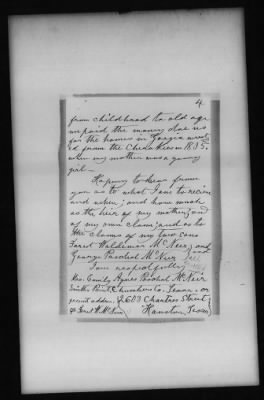 4.
from childhood to old age
un paid the money due us
for the homes in Georgia wrest
ed from the Cherokees in 1835.
when my mother was a young
girl—
Hoping to hear from
you as to what I am to receive
and when; and how much
as the heir of my mother, and
of my own claim; and as to
the claims of my two sons
Forest Waldemar McNeir, and
George Paschal McNeir
I am respectfully,
Mrs. Emily Agnes Paschal McNeir
Smith's Point, Chambers Co., Texas, or
present address, 2603 Charles Street
℅ Forest W. McNeir Houston, Texas